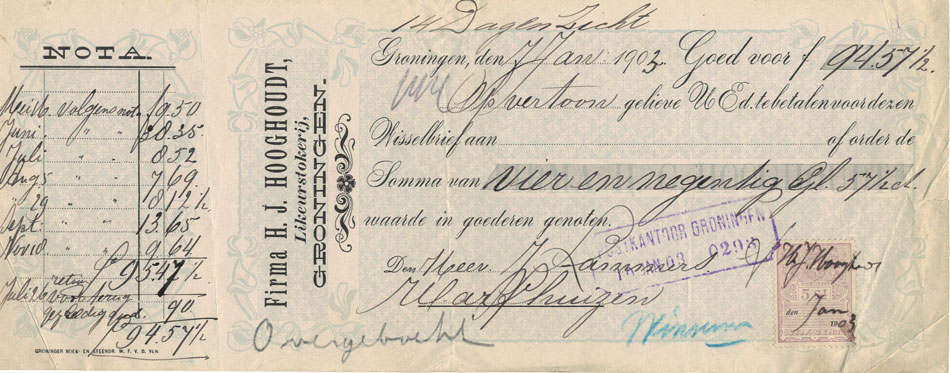 NOTA.
Mei 16 volgens not. 19.50
Juni " " 38.35
Juli " " 8 52
Aug 5 " " 7 69
" 29 " " 18 12½
Sept. " " 13.65
Nov 18 " " 9 64
95.47½
Juli 26 retour
90.
94.57½
GRONINGER BOEK- EN STEENDR. W. F. V. D. VLN
Firma H. J. HOOGHOUDT,
Likeurstokerij,
GRONINGEN.
14 Dagen Zicht
Groningen, den 7 Jan 1903. Goed voor f. 94.57½.
Op vertoon gelieve U Ed. te betalen voor dezen
Wisselbrief aan of order de
Somma van vier en negentig Gl. 57½ ct.
waarde in goederen genoten.
POSTKANTOOR GRONINGEN
JAN 03 0293
Den Heer J. Lammers
Warfhuizen
HJ Hooghoudt
5 Ct
den 7 Jan 1903
Overgeboekt
Winsum